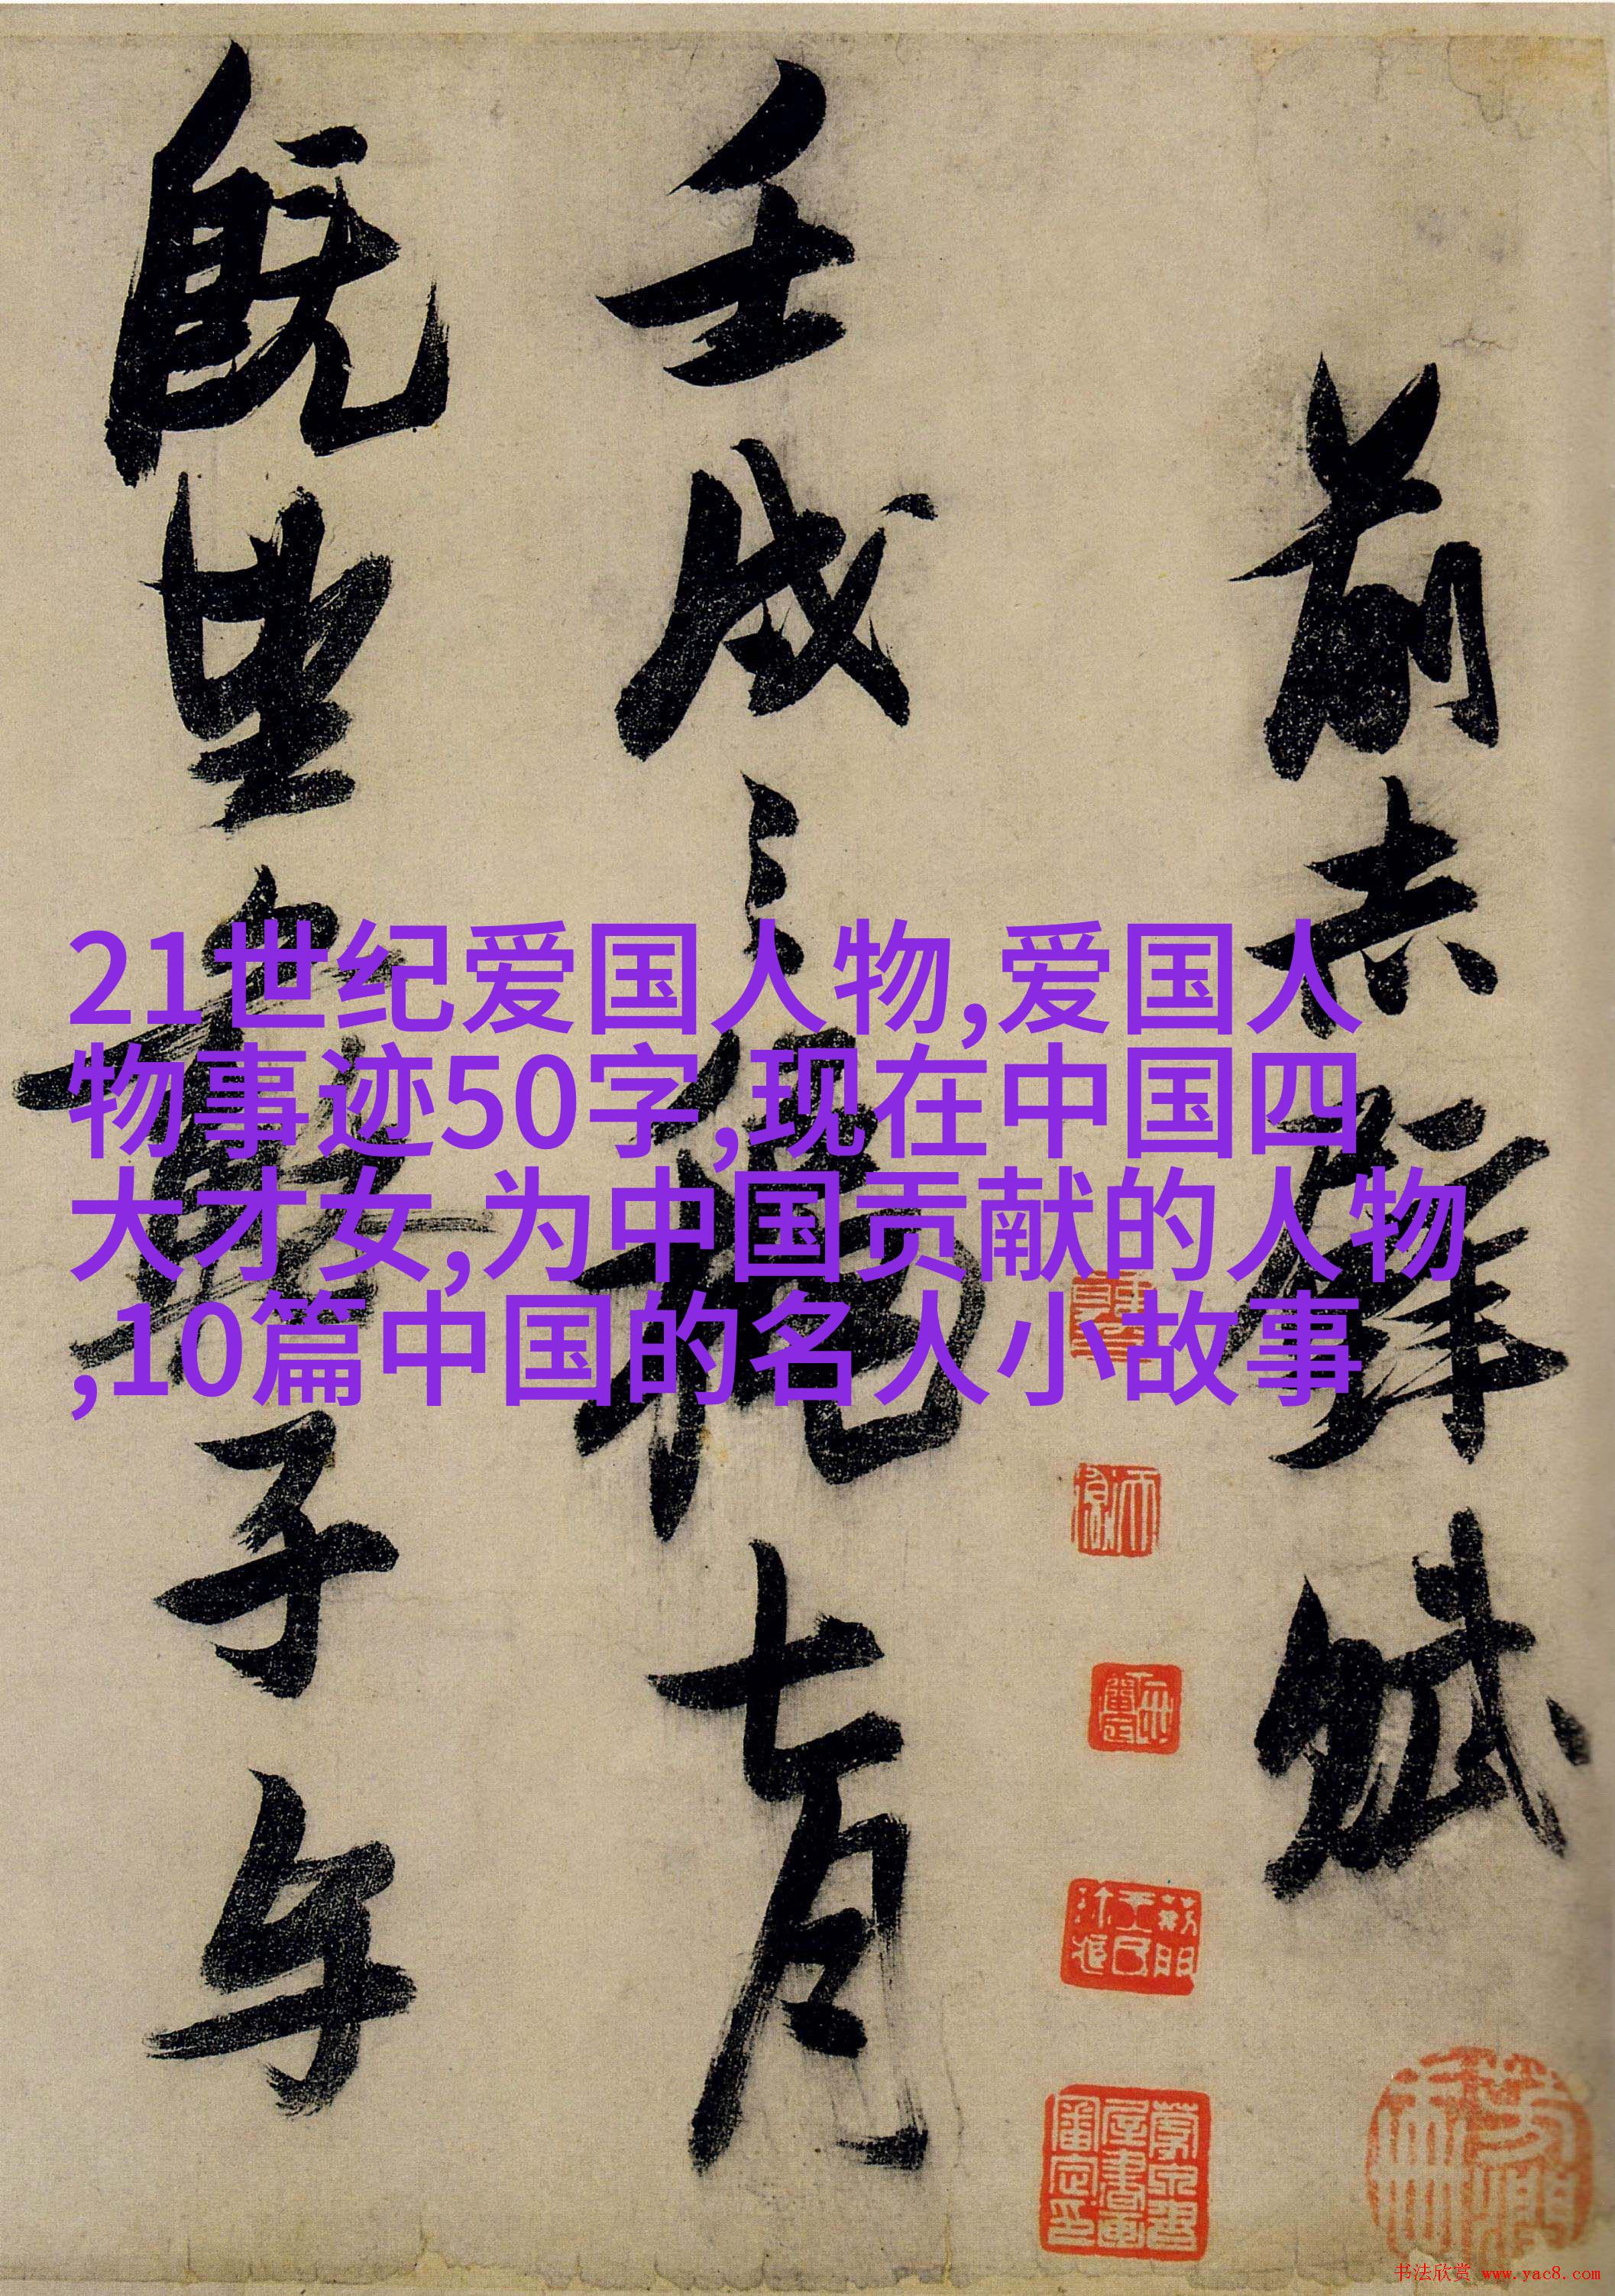 前赤壁賦
壬戌之秋七月
既望蘇子与
21世纪爱国人物,爱国人
物事迹50字,现在中国四
大才女,为中国贡献的人物
,10篇中国的名人小故事
书法欣赏 www.yac8.com